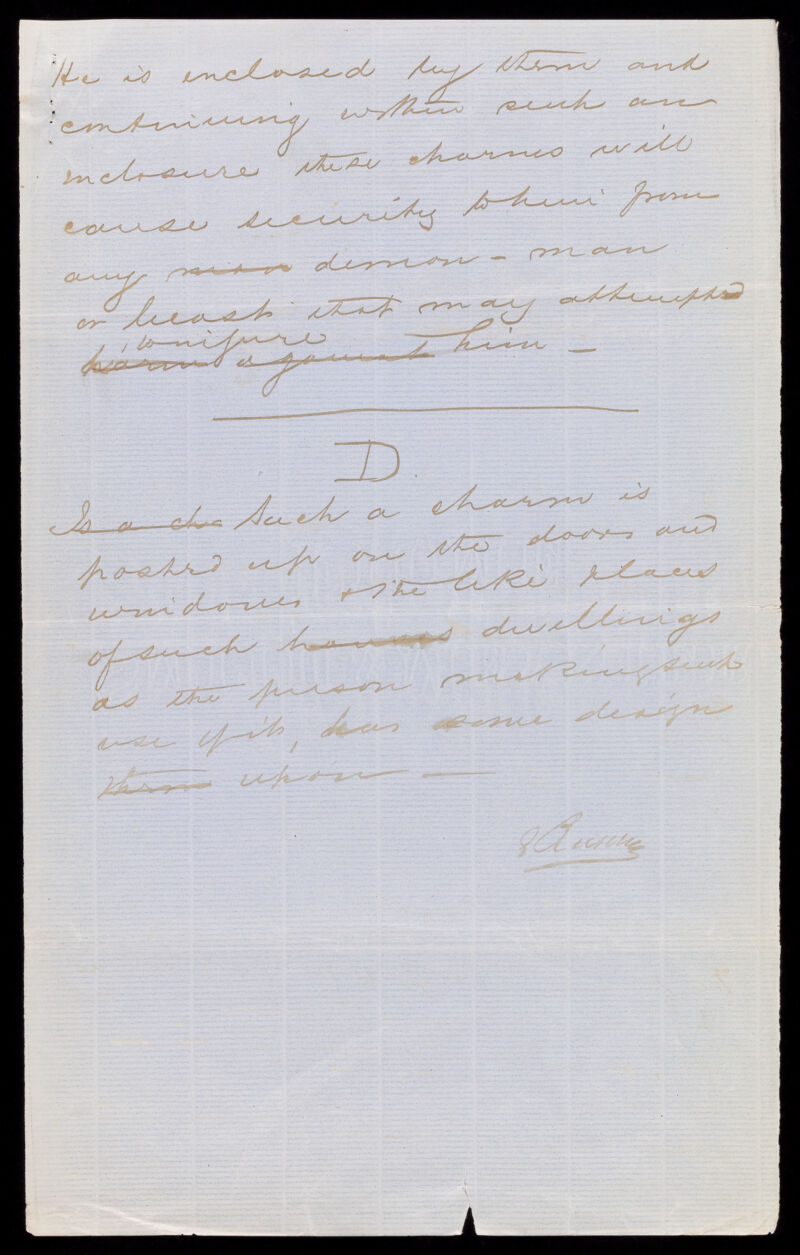 He is enclosed by them and
continuing within such an
inclosure these charms will
cause security to him from
any man demon - man
or beast that may attempted
to injure
harm against him -
D
Is a ch Such a charm is
posted up on the doors and
windows & the like places
of such houses dwellings
as the person making such
use of it, has some design
them upon —